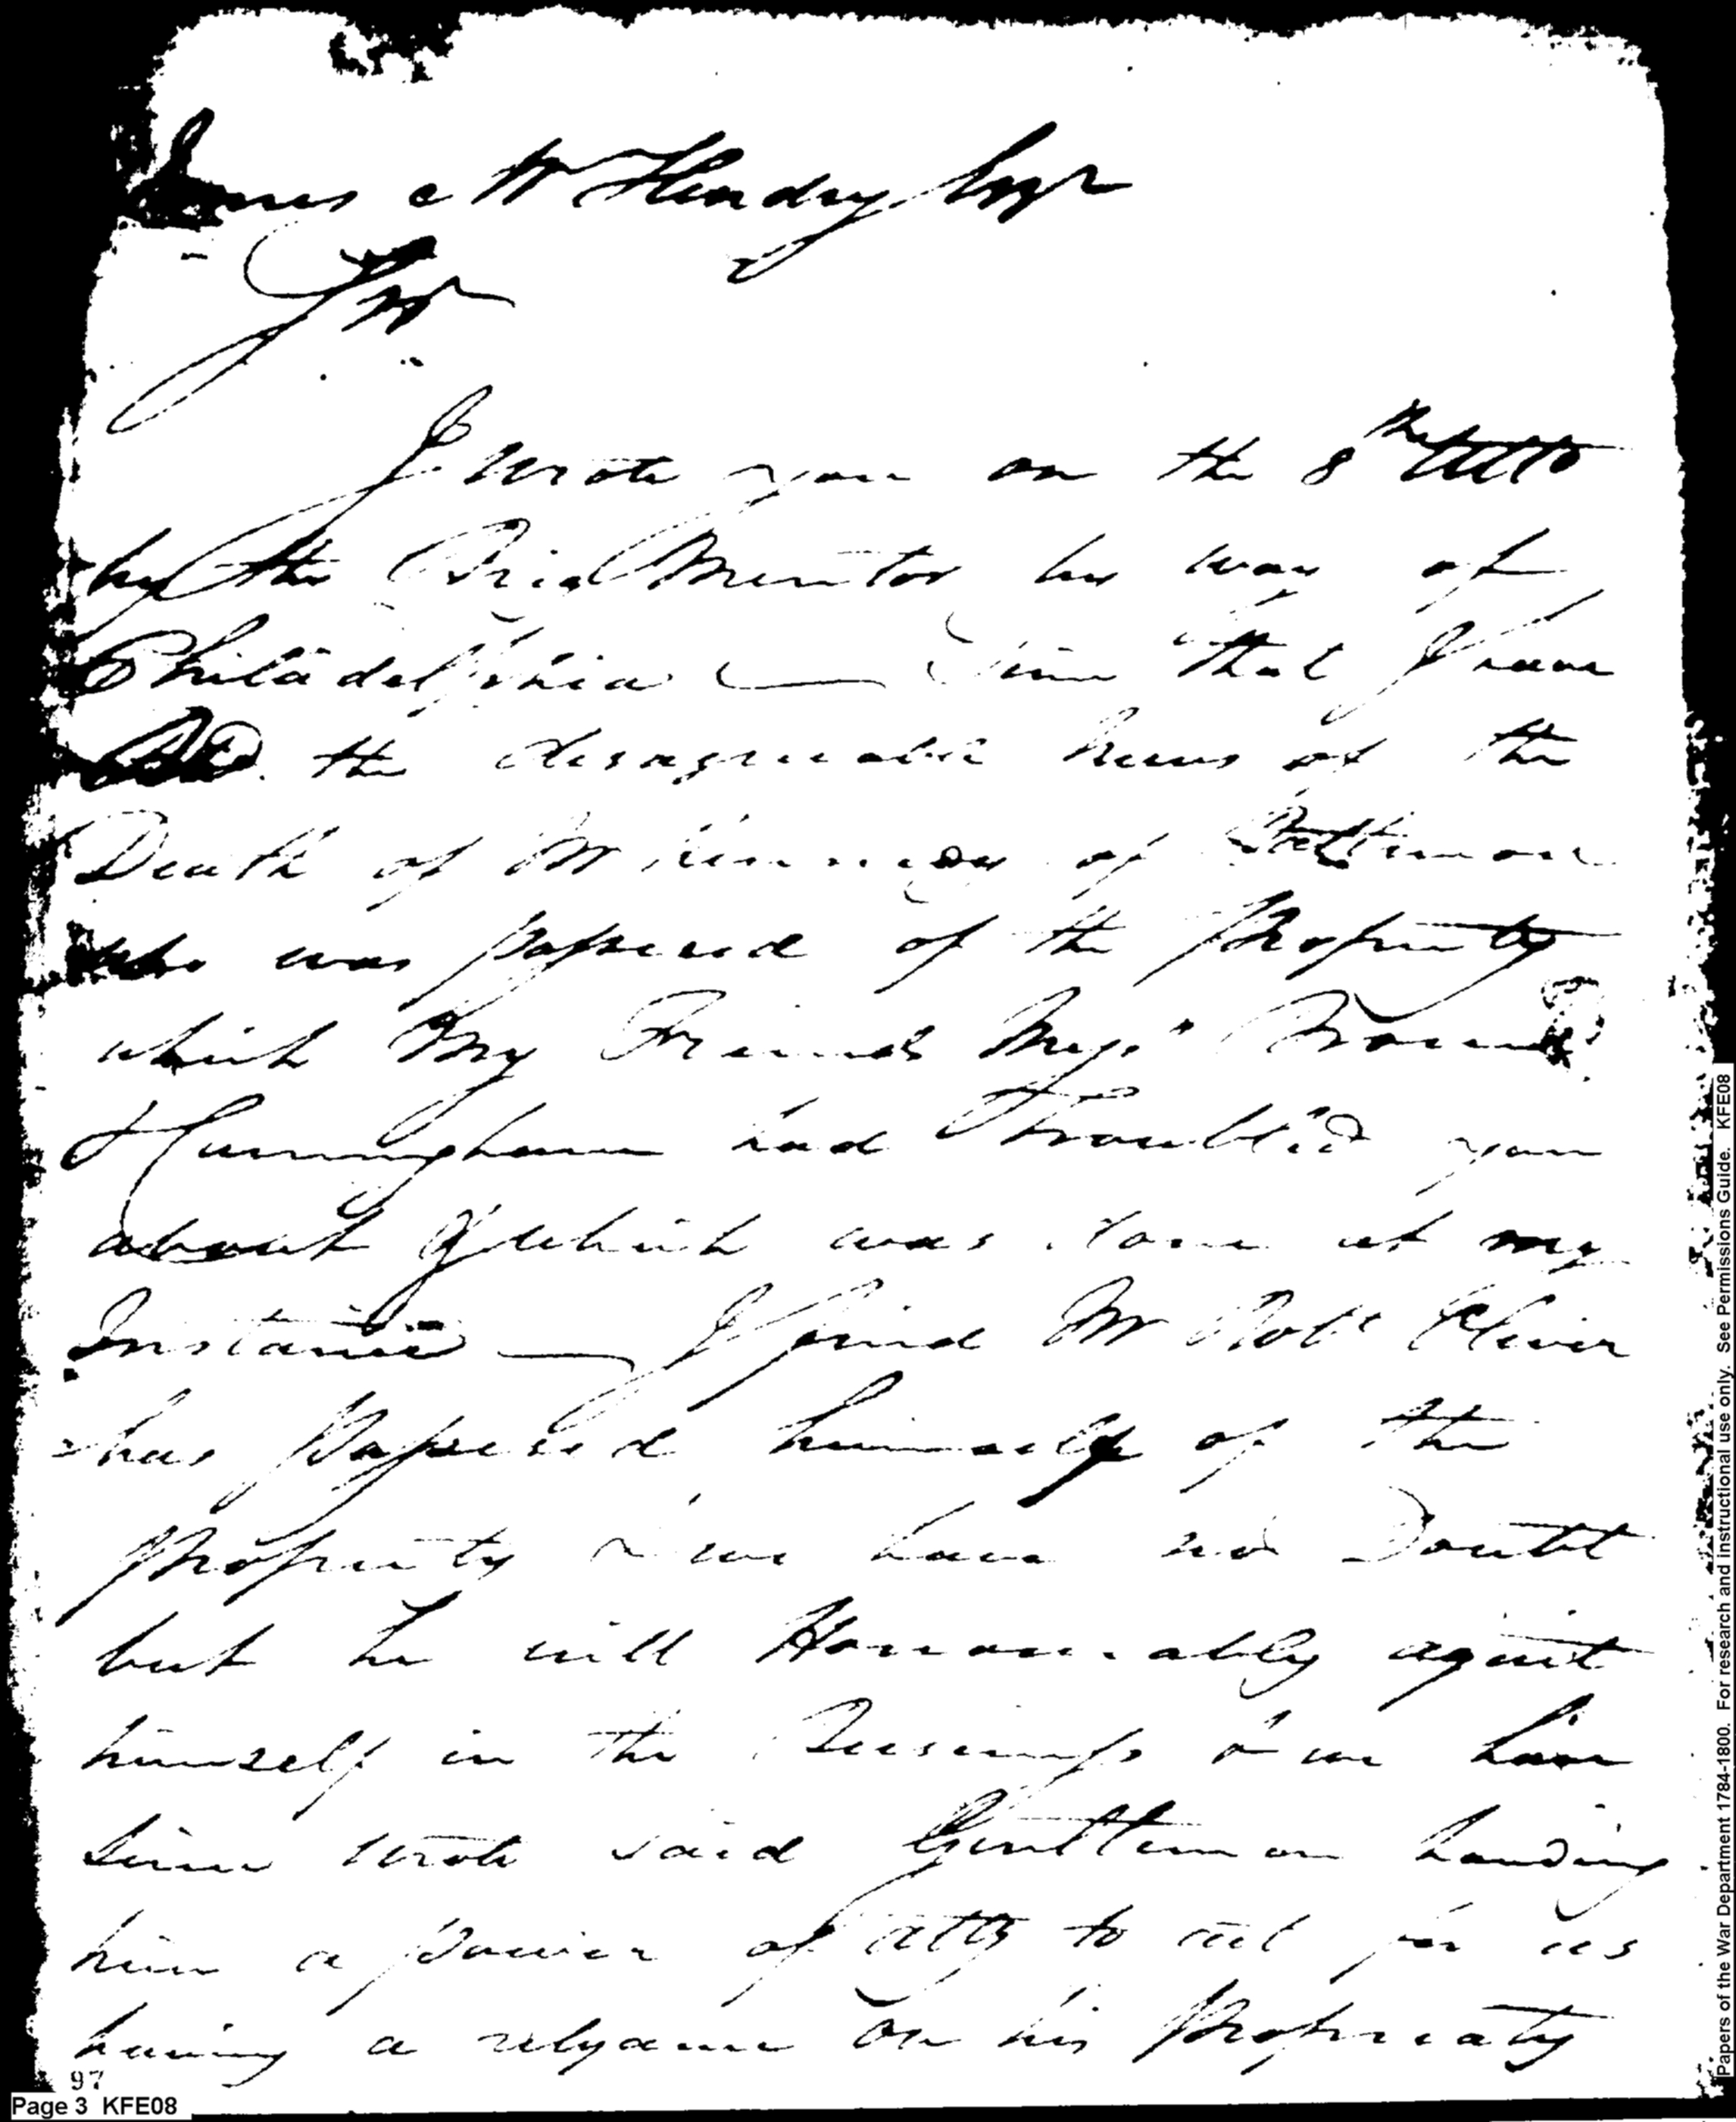 James McHendry Esqr
Sir
I wrote you on the 8th Ulto
by the Brig Mentor by way of
Philadelphia — Since that I have
Recd. the disagreeable News of the
Death of Mr Kennedy of Baltimore
who was possessed of the Property
which My Friends Messrs
Cunningham had Troubled you
about & which was done at my
Instance — I find Mr Robt Oliver
has Possessed himself of the
Property & we have no Doubt
but he will Honourably aquit
himself in the Business & we have
since wrote said Gentleman handing
him a Power of atty to act for us
having a relyance On his Propriaty
97
Page 3 KFE08
Papers of the War Department 1784-1800. For research and instructional use only. See Permissions Guide. KFE08